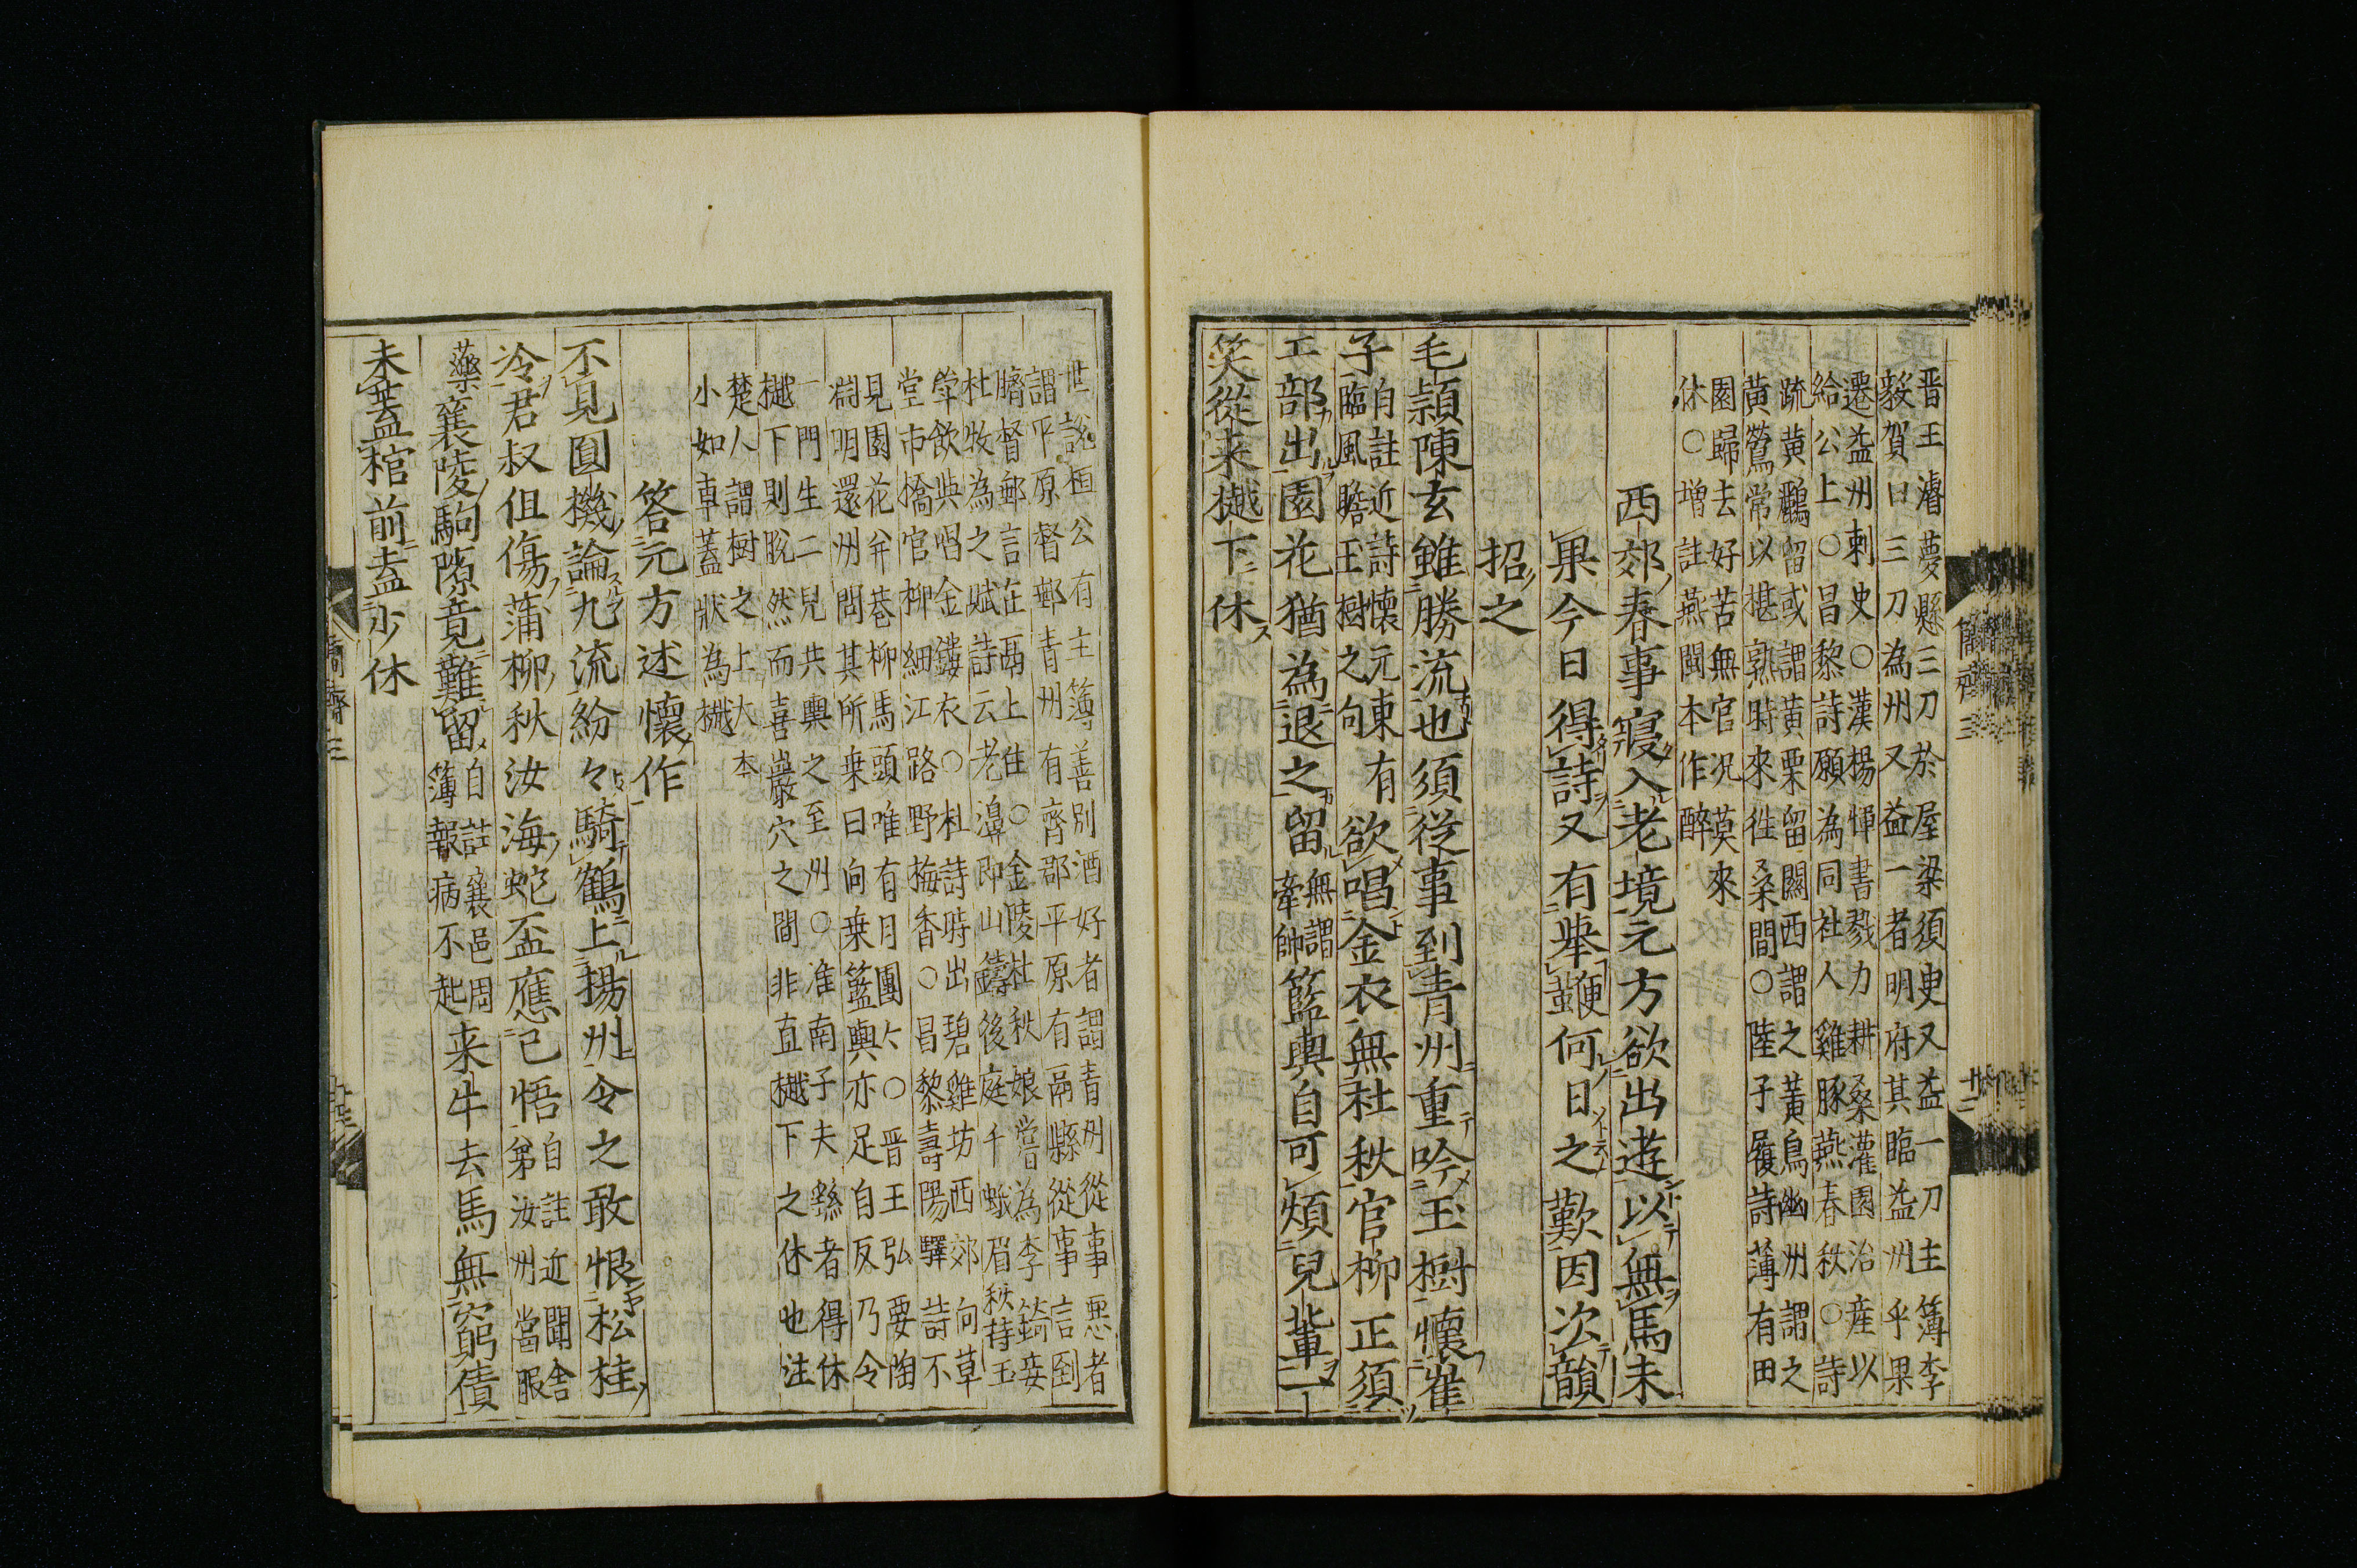 晋王濬夢懸三刀於屋梁須史又益一刀主簿李
毅賀曰三刀為州又益一者明府其臨益州乎果
遷益州刺史○漢楊惲書戮力耕桑灌園治産以
給公上○昌黎詩願為同社人雞豚燕春秋○詩
疏黄鸝留或謂黄栗留關西謂之黃鳥幽州謂之
黄鶯常以椹熟時來徃桑間○陸子履詩薄有田
園歸去好苦無官况莫來
休○增註燕閩本作醉
西郊春事寢入老境元方欲出遊以無馬未
果今日得詩又有舉鞭何日之歎因次韻
招之
毛頴陳玄雖勝流也須從事到青州重吟玉樹懷崔
子自註近詩懷元東有
臨風瞻玉樹之句
欲唱金衣無杜秋官柳正須
工部出園花猶為退之留無謂
牽帥
籃輿自可煩兒輩一
笑從来樾下休
世說桓公有主簿善别酒好者謂青州從事惡者
謂平原督郵青州有齊郡平原有鬲縣從事言到
臍督郵言在鬲上住○金陵杜秋娘嘗為李錡妾
杜牧為之賦詩云老濞即山鑄後庭千蛾眉秋持玉
斝飲與唱金縷衣○杜詩時出碧雞坊西郊向草
堂市橋官柳細江路野梅香○昌黎壽陽驛詩不
見園花弁巷柳馬頭唯有月團々○晋王弘要陶
淵明還州問其所乗曰向乗籃輿亦足自反乃令
一門生二兒共輿之至州○淮南子夫繇者得休
樾下則脫然而喜巖穴之間非直樾下之休也注
楚人謂樹之上大本
小如車蓋狀為樾
答元方述懷作
不見圓機論九流紛々騎鶴上揚州令之敢恨松桂
冷君叔但傷蒲柳秋汝海蛇盃應已悟自註近聞舎
弟汝州當服
藥
襄陵駒隙竟難留自註襄邑周
簿報病不起
来牛去馬無窮債
未蓋棺前盍少休
簡齋三
十三